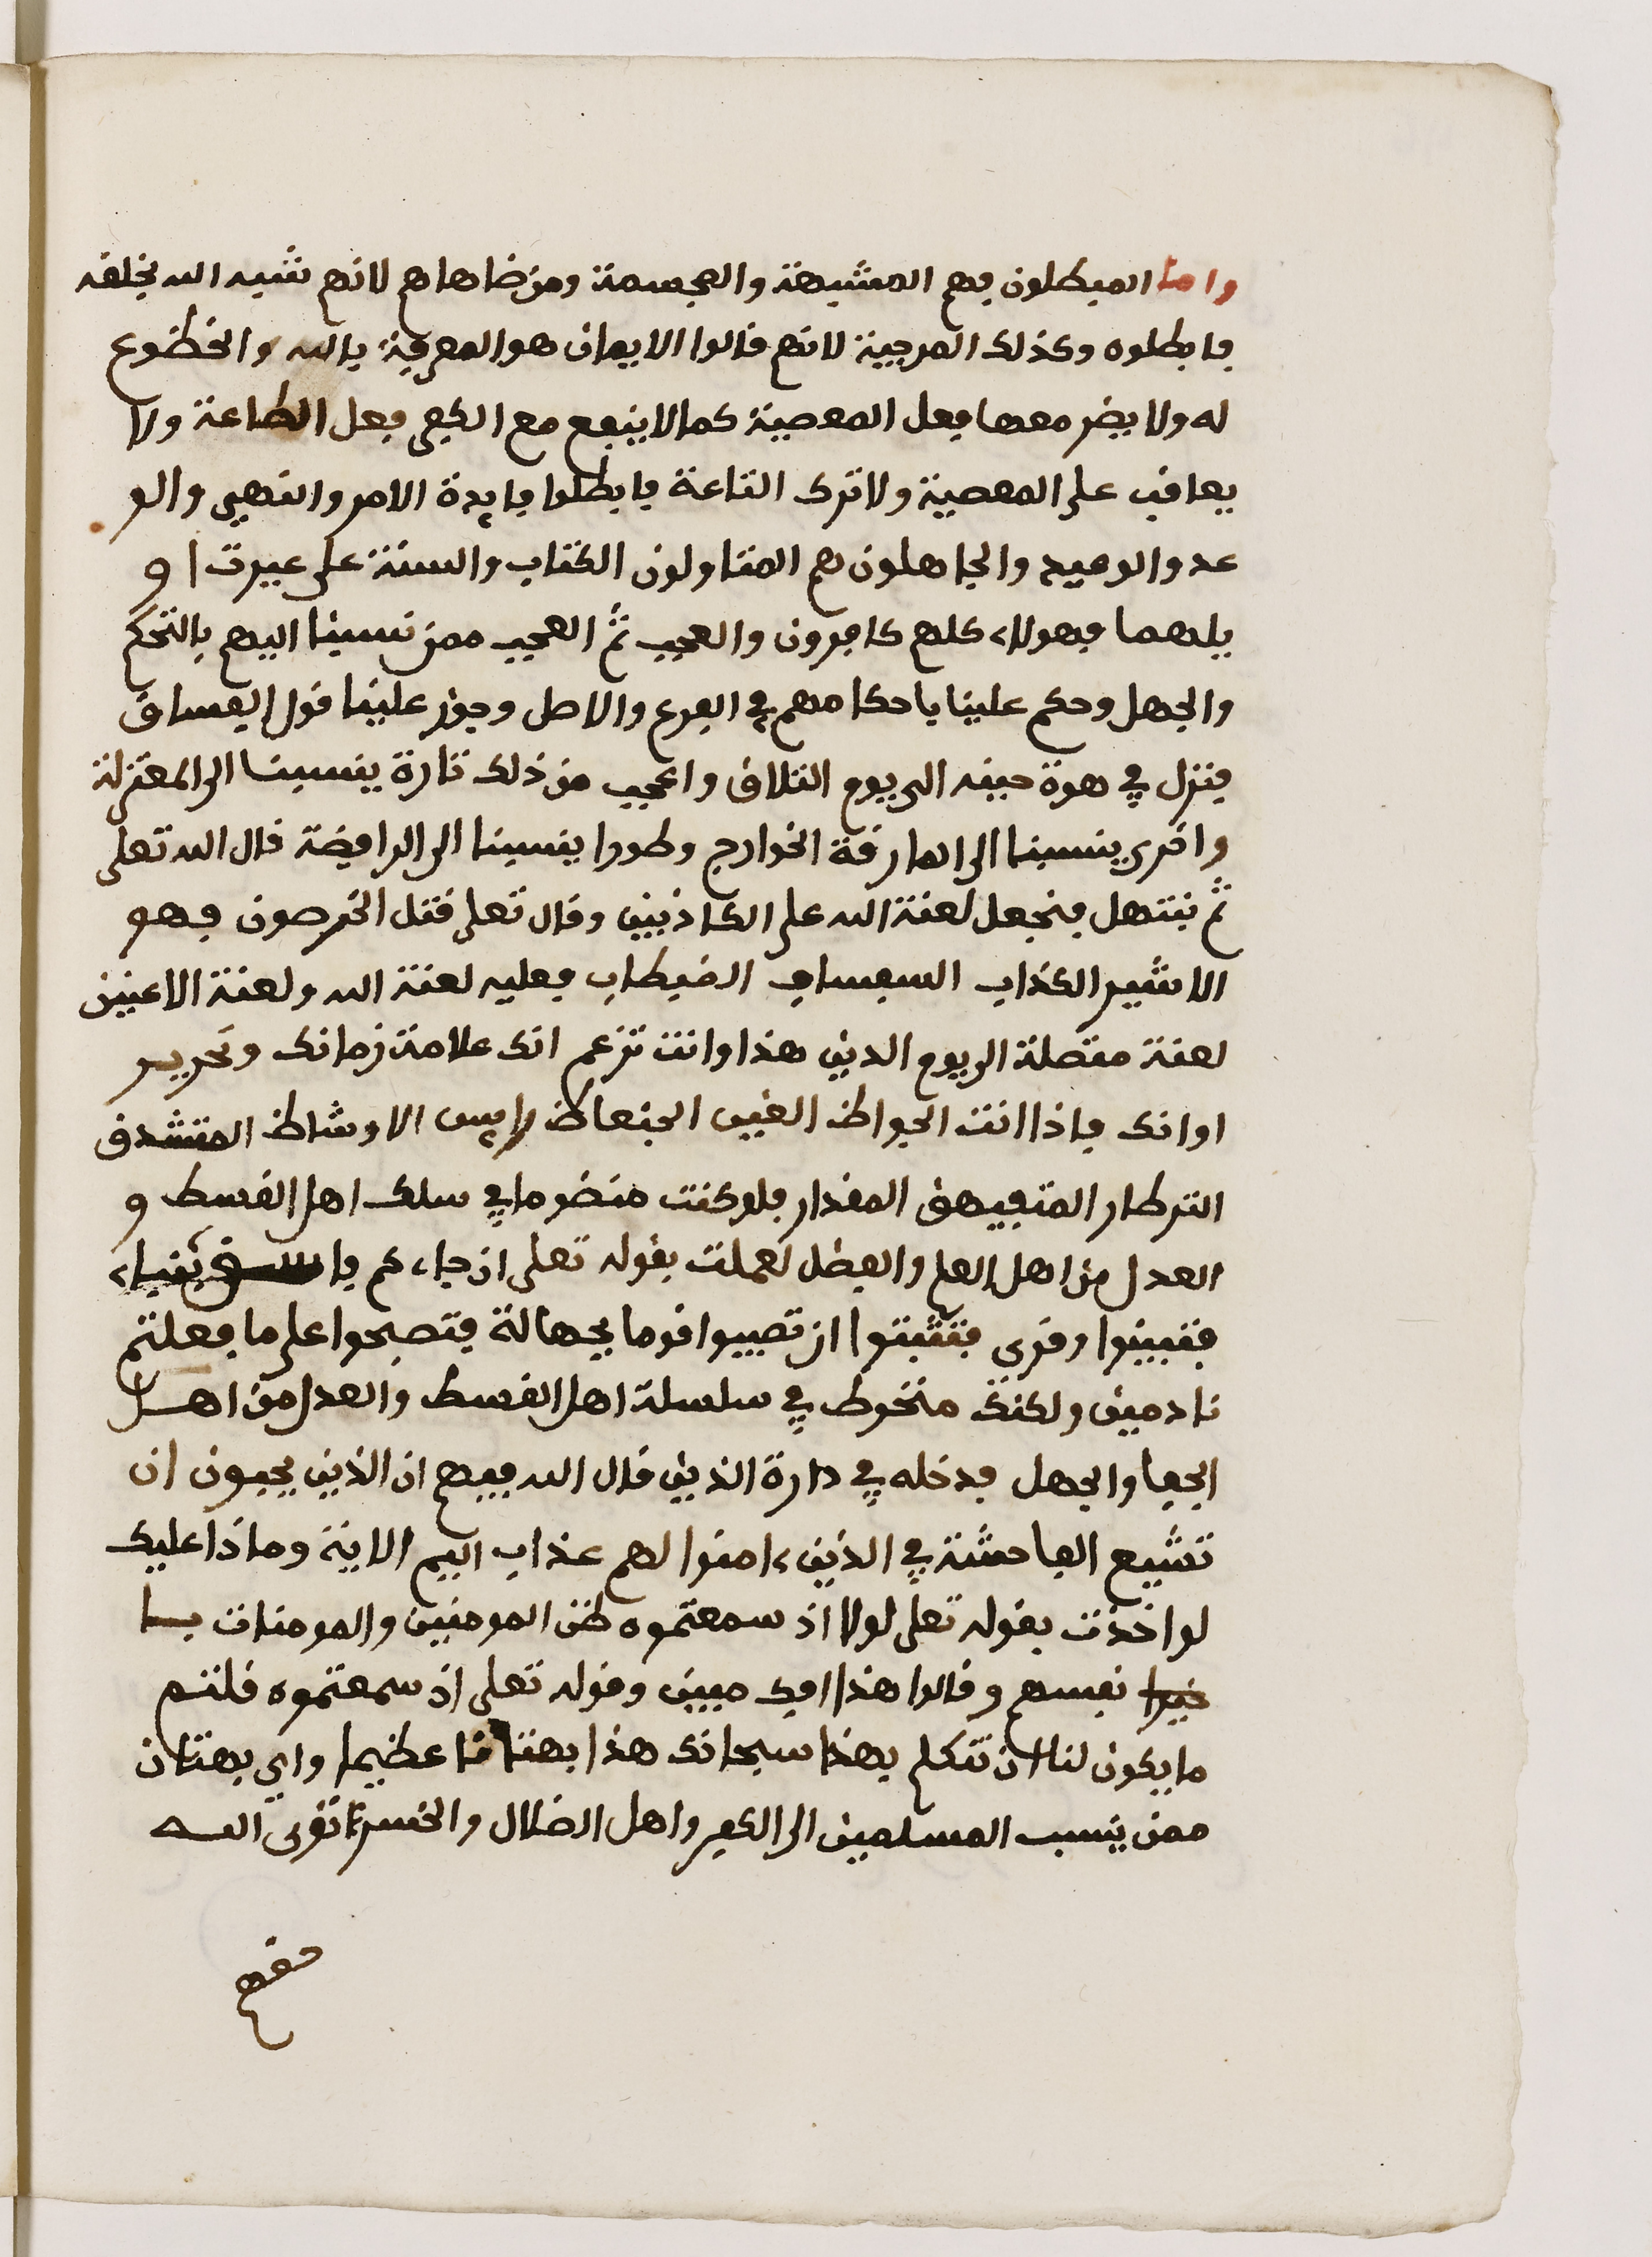 واما المبطلون فهم المشبهة والمجسمة ومن ضاهاهم لانهم شبه الله بخلقه
فابطلوه وكذلك المرجية لانهم قالوا الايمان هو المعرفة بالله والخضوع
له ولا يضر معها فعل المعصية كما لا ينفع مع الكفر فعل الطاعة ولا
يعاقب على المعصية ولا ترك التاعة فابطلوا فايدة الامر والنهي والو
عد والوعيد والجاهلون هم المتاولون الكتاب والسنة على غيرت او
يلهما فهولاء كلهم كافرون والعجب ثم العجب ممن نسبنا اليهم بالتحكم
والجهل وحكم علينا باحكامهم في الفرع والاصل وجوز علينا قول الفساق
فنزل في هوة حينه الى يوم التلاق واعجب من ذلك تارة ينسبنا الى المعتزلة
واخرى ينسبنا الى المارقة الخوارج وطورا ينسبنا الى الرافضة قال الله تعلى
ثم نبتهل فنجعل لعنة الله على الكاذبين وقال تعلى قتل الخرصون فهو
الاشير الكذاب السفساف الضيطاب فعليه لعنة الله ولعنة الاعنين
لعنة متصلة الى يوم الدين هذا وانت تزعم انك علامة زمانك ونحرير
اوانك فاذا انت الجواظ الغبي الجنعاظ رايس الاوشاظ المتشدق
الترطار المتفيهق المقدار فلو كنت منضوما في سلك اهل القسط و
العدل من اهل العلم والفضل لعملت بقوله تعلى ان جاءكم فاسق بنباء
فتبينوا وقرى فتثبتوا ان تصيبوا قوما بجهالة فتصبحوا على ما فعلتم
نادمين ولكنك منخوط في سلسلة اهل القسط والعدل من اهل
الجفا والجهل فدخله في دارة الذين قال الله فيهم ان الذين يحبون ان
تشيع الفاحشة في الذين ءامنوا لهم عذاب اليم الاية وماذا عليك
لو اخذت بقوله تعلى لولا اذ سمعتموه ظن المومنين والمومنات با
نفسهم خيرا وقالوا هذا افك مبين وقوله تعلى اذ سمعتموه قلتم
ما يكون لنا ان نتكلم بهذا سبحانك هذا بهتانا عظيما واي بهتان
ممن ينسب المسلمين الى الكفر واهل الضلال والخسر تقوى الله